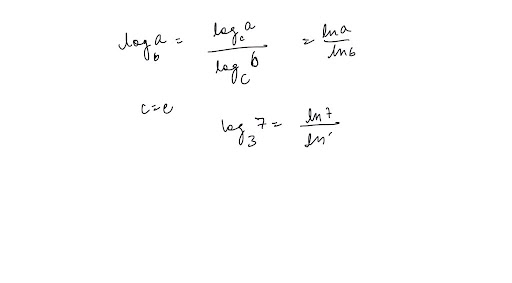 log_b a = log_c a / log_c b = ln a / ln b
c = e
log_3 7 = ln 7 / ln